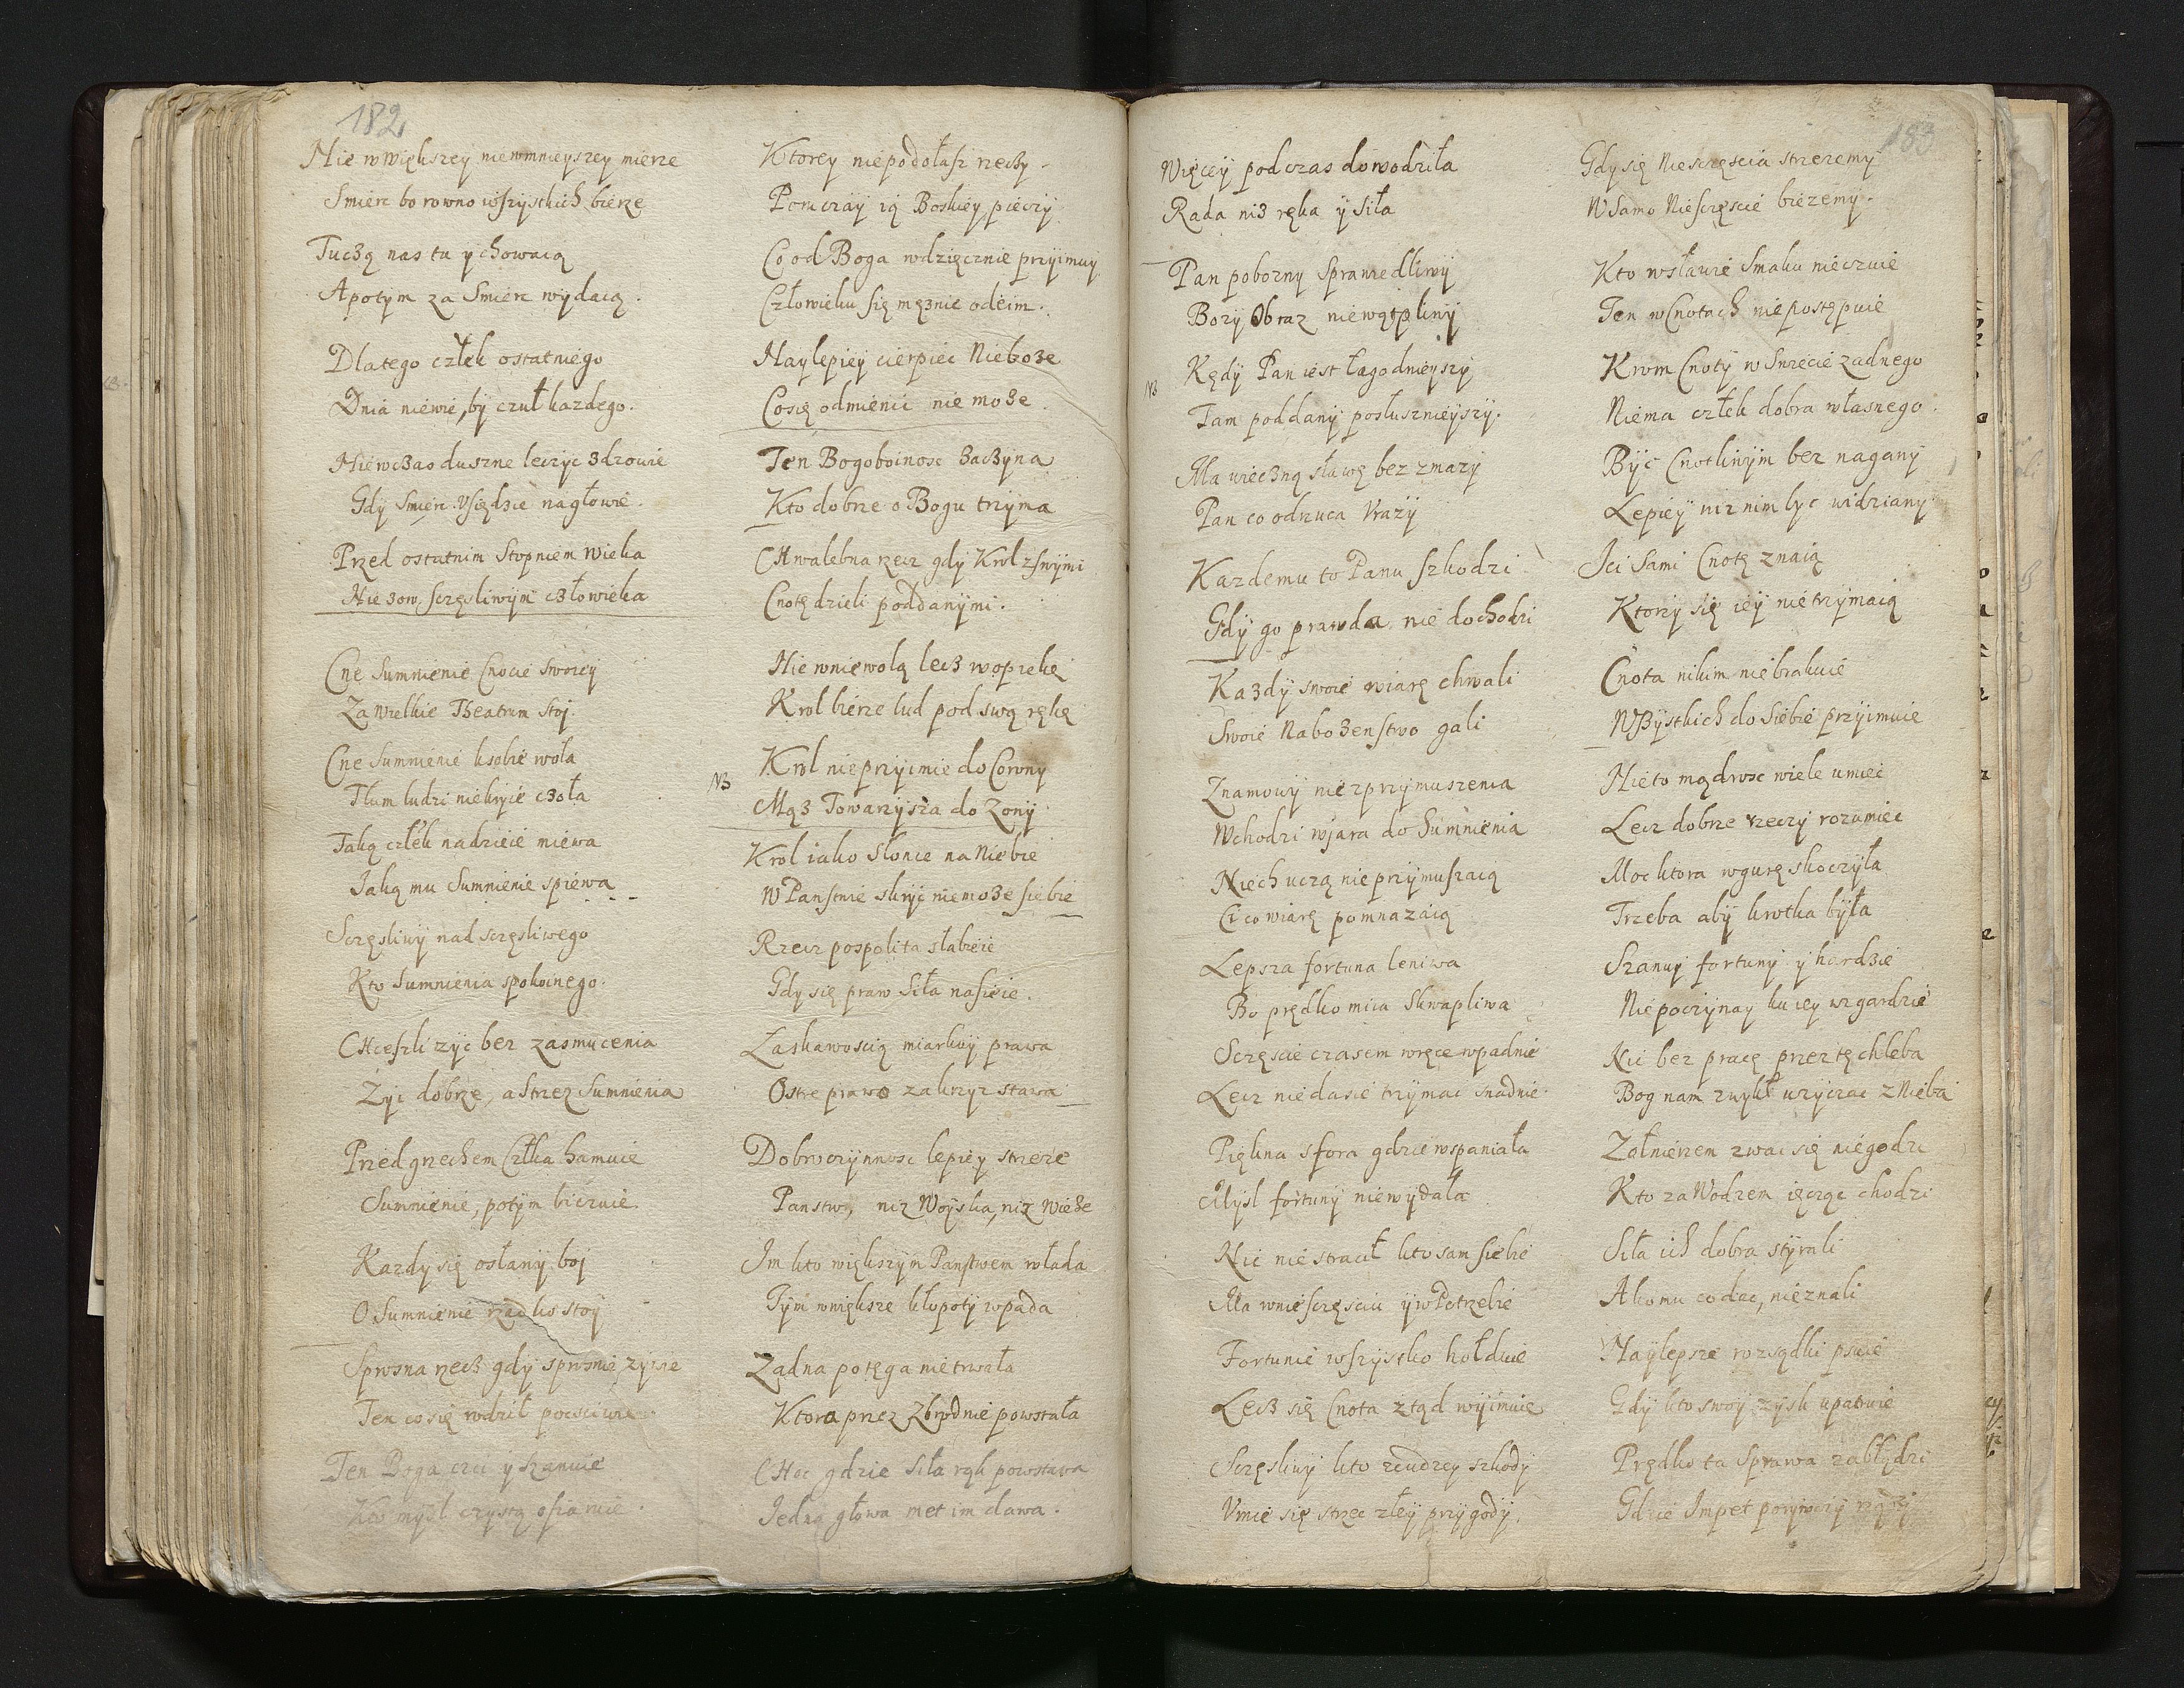 182
Nie w większey niewmnieyszey mierze
Smierc bo rowno wszystkich bierze
Tuczą nas tu ychowaią
Apotym za Smierc wydaią.
Dlatego człek ostatniego
Dnia niewie, by czuł kazdego.
Niewczas duszne leczyc zdrowie
Gdy Smierc Vsiędzie nagłowie.
Przed ostatnim Stopniem Wieka
Nie zow sczęsliwym człowieka
Cne Sumnienie Cnocie Swoiey
Za Wielkie Theatrum stoj
Cne Sumnienie ksobie woła
Tłum ludzi niekryie czoła
Taką człek nadzieie miewa
Iaką mu Sumnienie spiewa
Sczęsliwy nad sczęsliwego
Kto Sumnienia spokoinego.
CHceszli zyc bez zasmucenia
Zyi dobrze, a Strzez Sumnienia
Przed grzechem Człka hamuie
Sumnienie, potym biczuie
Kazdy się osłany boj
O Sumnienie rzadko stoy
Sprosna rzecz gdy sprosnie zyie
Ten co się rodził poczciwie
Ten Boga czci y szanuie
Kto mysl czystą ofiaruie.
Ktorey niepodołasz rzeczy
Poruczay ią Boskiey pieczy
Co od Boga wdzięcznie przyimuy
Człowieku się męznie odeim.
Naylepiey cierpiec Nieboze
Cosię odmienic nie moze
Ten Bogoboinosc zaczyna
Kto dobrze o Bogu trzyma
CHwalebna rzecz gdy Krol zswymi
Cnotę dzieli poddanymi.
Nie wniewolą lecz wopiekę
Krol bierze lud pod swą rękę
NB
Krol nieprzyimie do Corony
Mąz Towarzysza do Zony
Krol iako Słonce na Niebie
W Panstwie skryc niemoze siebie
Rzecz pospolita słabieie
Gdy się praw Siła nasieie.
Łaskawoscią miarkuy prawa
Ostre prawo zakrzyz stawa
Dobroczynnosc lepiey strzeze
Panstw, niz Woyska, niz Wieze
Im kto większym Panstwem włada
Tym wwiększe kłopoty wpada
Zadna potęga nietrwała
Ktora przez Zbrodnie powstała
CHoc gdzie Siła rąk powstawa
Iedna głowa met im dawa.
183
Więcey podczas dowodziła
Rada niz ręka y siła
Pan pobozny Sprawiedliwy
Bozy Obraz niewątpliwy
NB
Kędy Pan iest łagodnieyszy
Tam poddany posłusznieyszy.
Ma wieczną sławę bez zmazy
Pan co odrzuca Vrazy
Kazdemu to Panu szkodzi
Gdy go prawda nie dochodzi
Kazdy swoie wiarę chwali
Swoie Nabozenstwo gali
Znamowy niezprzymuszenia
Wchodzi wjara do Sumnienia
Niech uczą nieprzymuszaią
Ci co wiarę pomnazaią
Lepsza fortuna leniwa
Bo prędko mia Skwapliwa
Sczęscie czasem wręce wpadnie
Lecz niedasie trzymac snadnie
Piękna sfora gdzie wspaniała
Mysl fortuny niewydała
Nic nie stracił kto sam siebie
Ma wnieszczęsciu y w Potrzebie
Fortunie wszystko hołduie
Lecz się Cnota ztąd wyimuie
Sczęsliwy kto zcudzey szkody
Vmie się strzec złey przygody.
Gdy się Niesczęscia strzezemy
W Samo Niesczęscie biezemy.
Kto wsławie Smaku nieczuie
Ten w Cnotach niepostępuie
Krom Cnoty w Swiecie zadnego
Niema człek dobra własnego.
Byc Cnotliwym bez nagany
Lepiey niz nim byc widziany
Ici Sami Cnotę znaią
Ktorzy się iey nietrzymaią
Cnota nikim niebrakuie
Wszystkich do Siebie przyimuie
Nieto mądrosc wiele umiec
Lecz dobrze rzeczy rozumiec
Moc ktora wgurę skoczyła
Trzeba aby krotka była
Szanuy fortuny y hardzie
Niepoczynay ku iey wzgardzie
Nic bez pracę przez tę chleba
Bog nam zwykł uzyczac z Nieba
Zołnierzem zwac się niegodzi
Kto za Wodzem ięcząc chodzi
Siła ich dobra styrali
Akomu codac, nieznali
Naylepsze rozsądki psuie
Gdy kto swoy zysk upatruie
Prędko ta Sprawa zabłądzi
Gdzie Impet porywczy rządzi